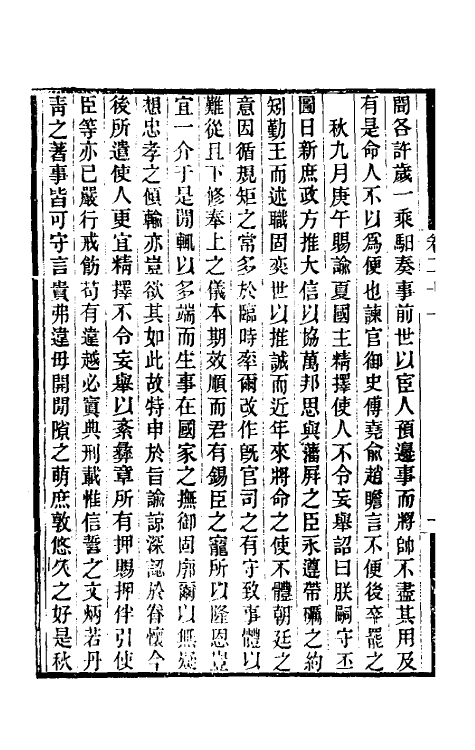 間各許歲一乘馹奏事前世以宦人預邊事而將帥不盡其用及
有是命人不以爲便也諫官御史傅堯俞趙瞻言不便後卒罷之
秋九月庚午賜諭夏國主精擇使人不令妄舉詔曰朕嗣守丕
圖日新庶政方推大信以協萬邦思與藩屏之臣永遵帶礪之約
矧勤王而述職固奕世以推誠而近年來將命之使不體朝廷之
意因循規矩之常多於臨時率爾改作旣官司之有守致事體以
難從且下修奉上之儀本期效順而君有錫臣之寵所以隆恩豈
宜一介于是閒輒以多端而生事在國家之撫御固廓爾以無疑
想忠孝之傾輸亦豈欲其如此故特申於旨諭諒深認於眷懷今
後所遣使人更宜精擇不令妄舉以紊彝章所有押賜押伴引使
臣等亦已嚴行戒飭苟有違越必寘典刑載惟信誓之文炳若丹
靑之著事皆可守言貴弗違毋開閒隙之萌庶敦悠久之好是秋
卷二十一